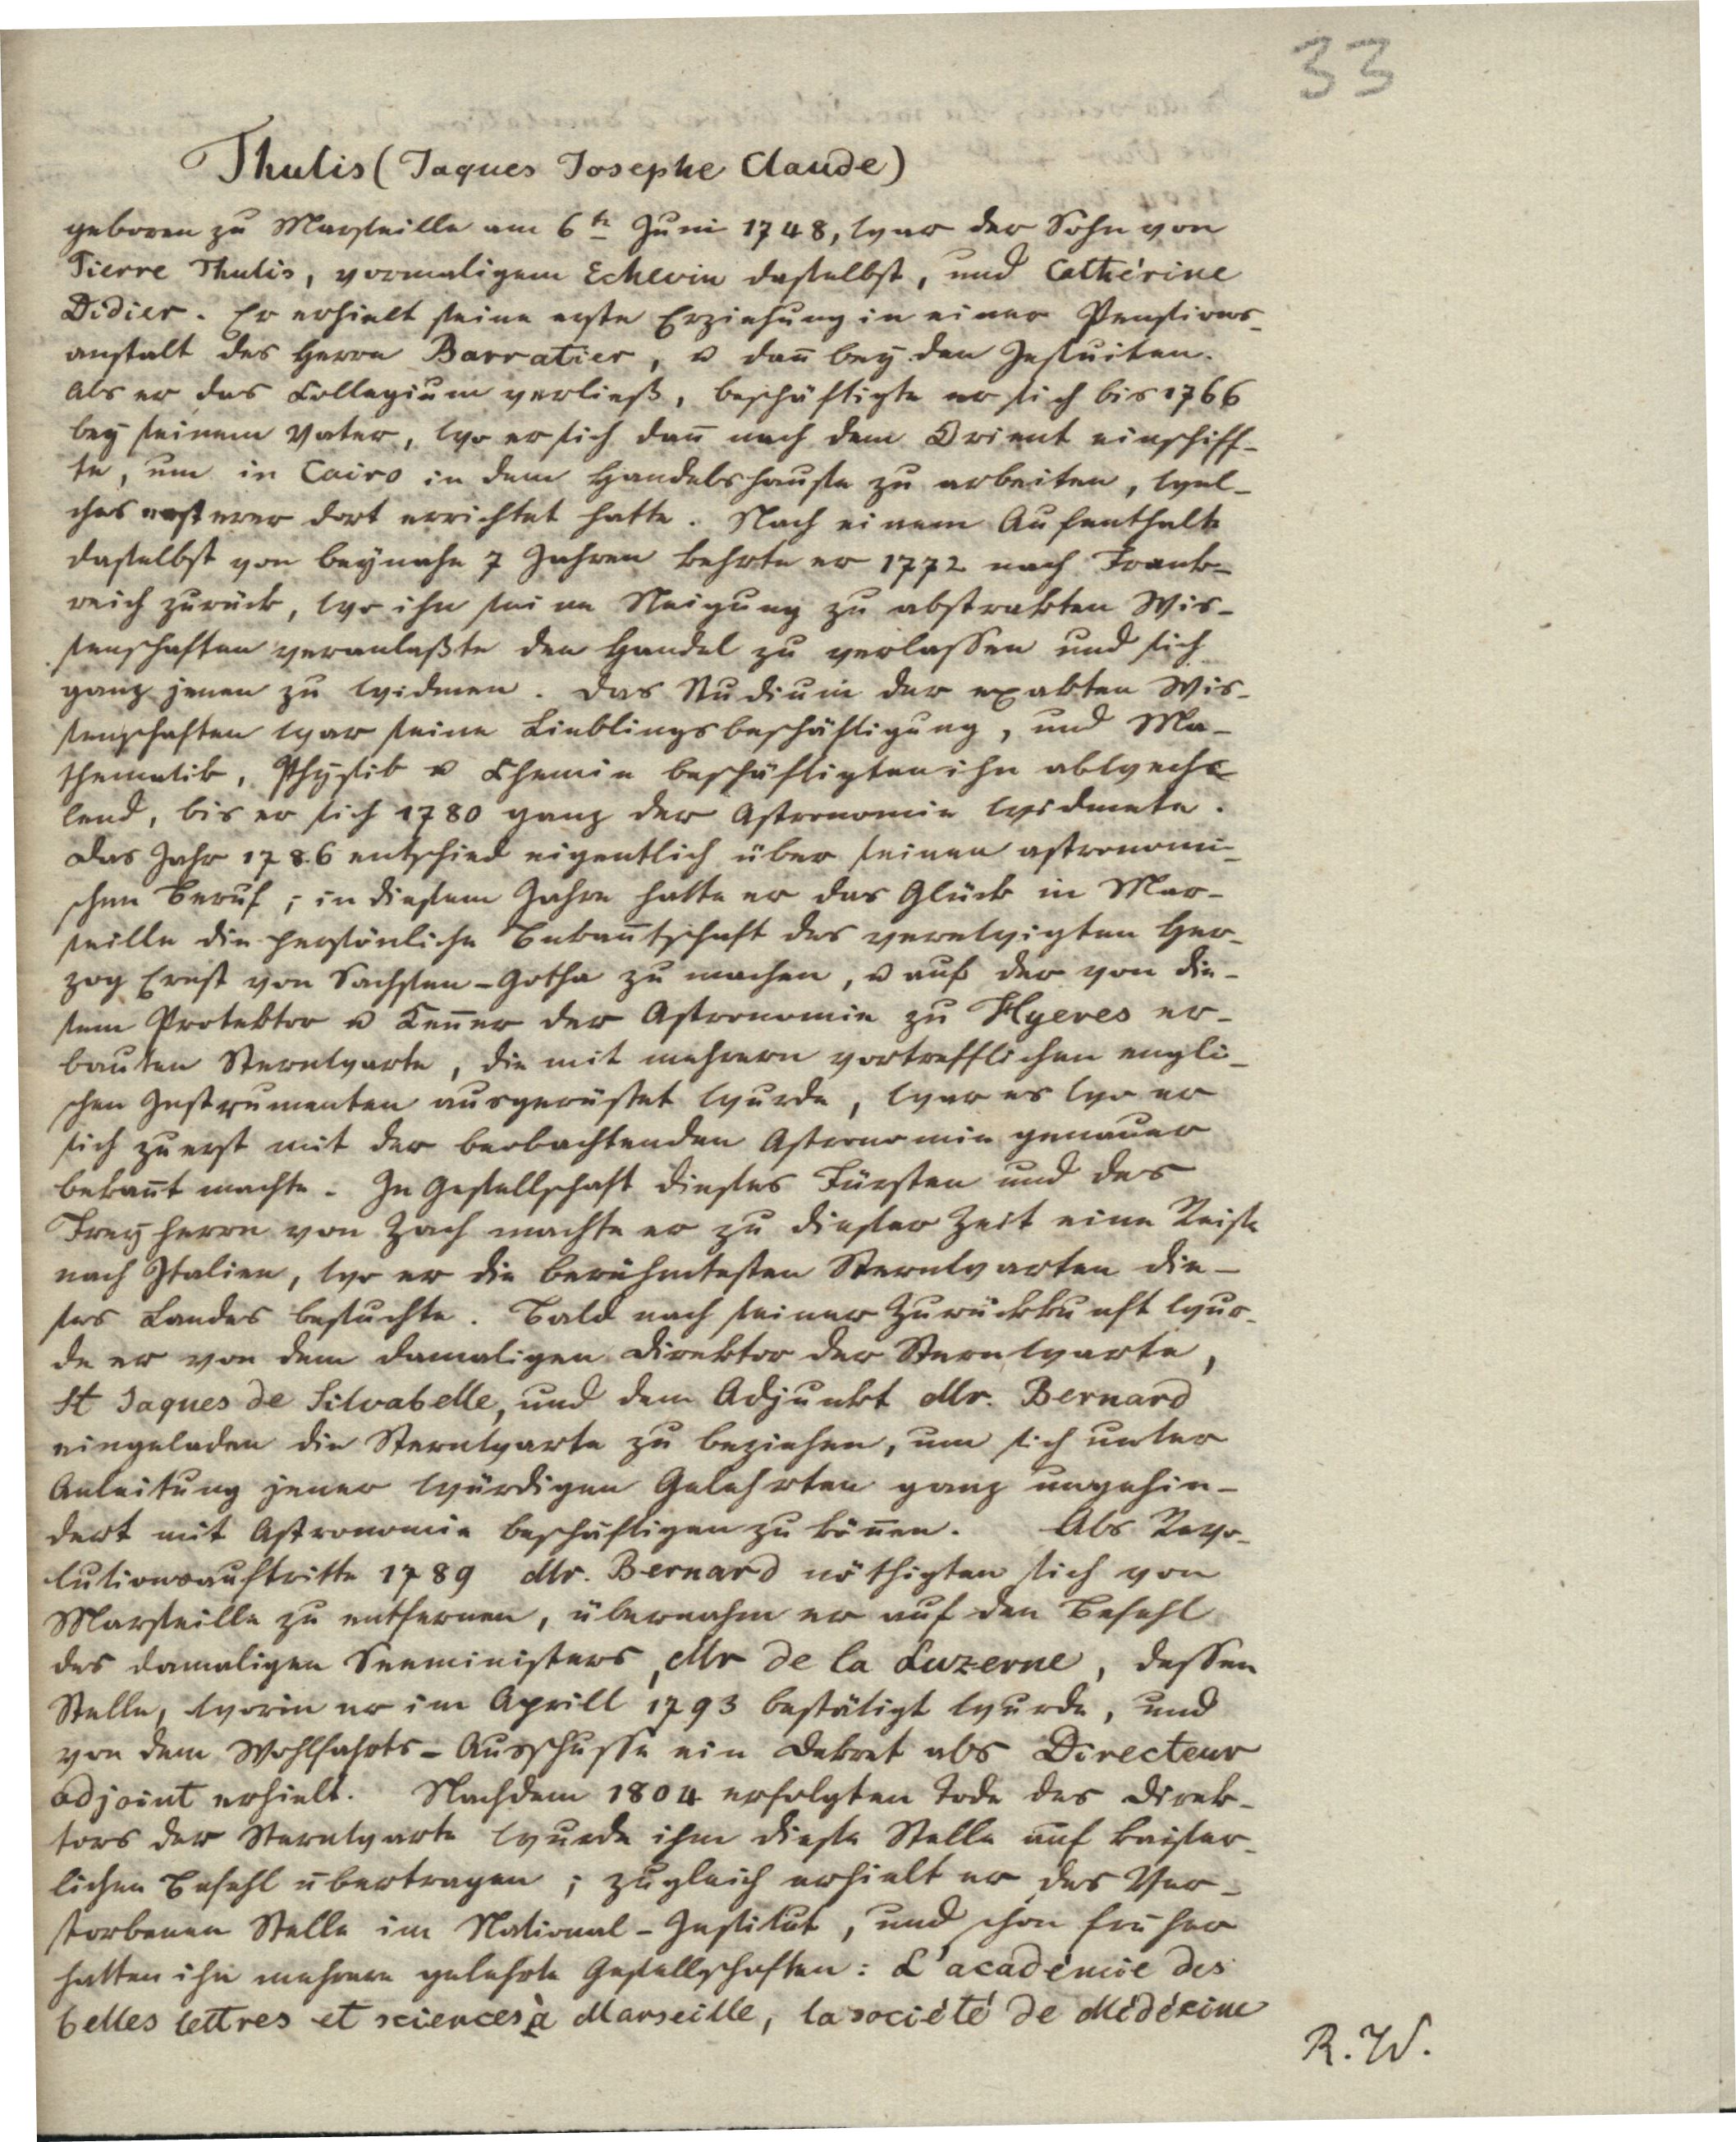 33
Thulis (Jaques Josephe Claude)
geboren zu Marseille am 6tn Juni 1748, war der Sohn von
Pierre Thulis, vormaligem Echevin daselbst, und Cathérine
Didier. Er erhielt seine erste Erziehung in einer Pensions-
anstalt des Herrn Barratier, u dan̄ bey den Jesuiten.
Als er das Collegium verließ, beschäftigte er sich bis 1766
bey seinem Vater, wo er sich dan̄ nach dem Orient einschiff-
te, um in Cairo in dem Handelshause zu arbeiten, wel-
ches ersterer dort errichtet hatte. Nach einem Aufenthalte
daselbst von beynahe 7 Jahren kehrte er 1772 nach Frank-
reich zurück, wo ihn seine Neigung zu abstrakten Wis-
senschaften veranlaßte den Handel zu verlassen und sich
ganz jenen zu widmen. Das Studium der exakten Wis-
senschaften war seine Lieblingsbeschäftigung, und Ma-
thematik, Physik u Chemie beschäftigten ihn abwechs
lend, bis er sich 1780 ganz der Astronomie widmete.
Das Jahr 1786 entschied eigentlich über seinen astronomi-
schen Beruf; in diesem Jahre hatte er das Glück in Mar-
seille die persönliche Bekan̄tschaft des verewigten Her-
zog Ernst von Sachsen-Gotha zu machen, u auf der von die-
sem Protektor u Ken̄er der Astronomie zu Hyeres er-
bauten Sternwarte, die mit mehrern vortrefflichen engli-
schen Instrumenten ausgerüstet wurde, war es wo er
sich zuerst mit der beobachtenden Astronomie genauer
bekan̄t machte. In Gesellschaft dieses Fürsten und des
Freyherrn von Zach machte er zu dieser Zeit eine Reise
nach Italien, wo er die berühmtesten Sternwarten die-
ses Landes besuchte. Bald nach seiner Zurückkunft wur-
de er von dem damaligen Direktor der Sternwarte,
St Jaques de Silvabelle, und dem Adjunkt Mr. Bernard
eingeladen die Sternwarte zu beziehen, um sich unter
Anleitung jener würdigen Gelehrten ganz ungehin-
dert mit Astronomie beschäftigen zu kön̄en. Als Revo-
lutionsauftritte 1789 Mr. Bernard nöthigten sich von
Marseille zu entfernen, übernahm er auf den Befehl
des damaligen Seeministers, Mr de la Luzerne, dessen
Stelle, worin er im Aprill 1793 bestätigt wurde, und
von dem Wohlfahrts-Ausschusse ein Dekret als Directeur
adjoint erhielt. Nachdem 1804 erfolgten Tode des Direk-
tors der Sternwarte wurde ihm diese Stelle auf kaiser-
lichen Befehl übertragen; zugleich erhielt er des Ver-
storbenen Stelle im National-Institut, und schon früher
hatten ihn mehrere gelehrte Gesellschaften: L'académie des
belles lettres et sciences à Marseille, la société de Médécine
R. W.